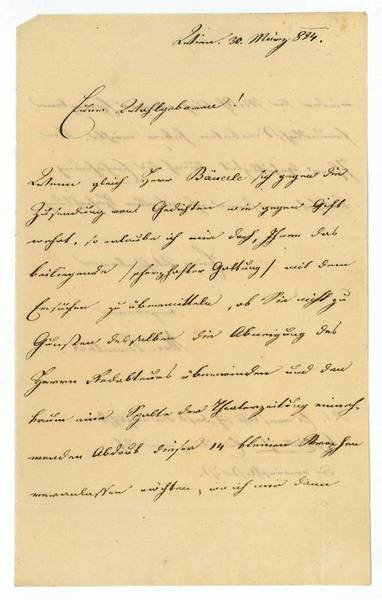 Wien. 30. März 854.
Euer Wohlgeboren!
Wenn gleich Herr Bäuerle sich gegen die
Zusendung von Gedichten wie gegen Gift
wehrt, so erlaube ich mir doch, Ihnen das
beiliegende /scherzhafter Gattung/ mit dem
Ersuchen zu übermitteln, ob Sie nicht zu
Gunsten desselben die Abneigung des
Herrn Redakteurs überwinden und den
kaum eine Spalte der Theaterzeitung einneh-
menden Abdruk dieser 14 kleinen Strophen
veranlassen möchten, wo ich mir dann